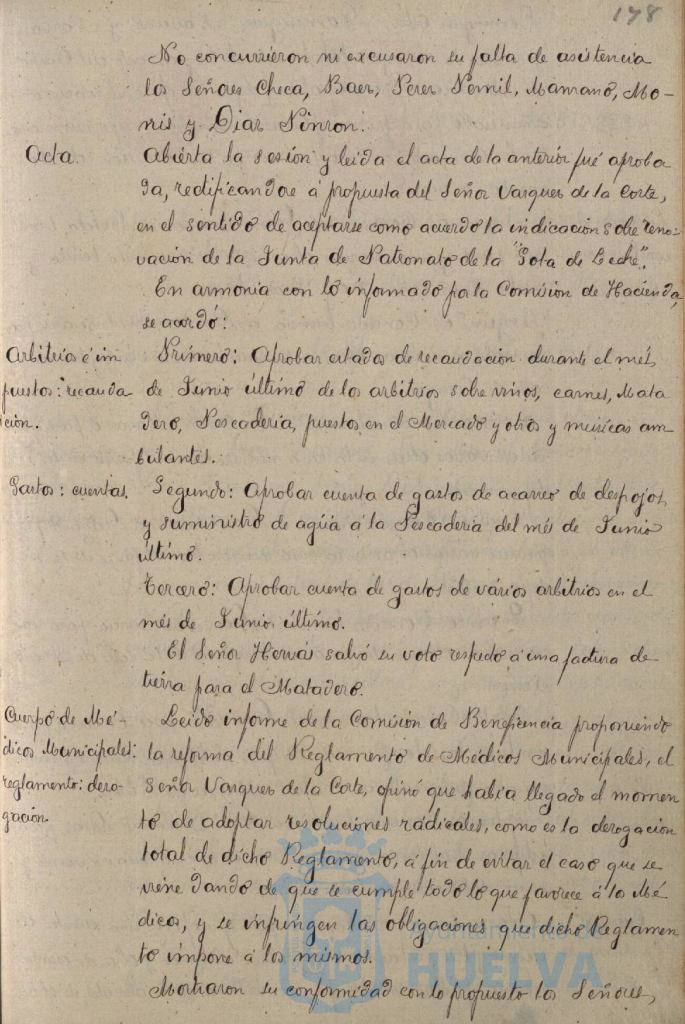 178
No concurrieron ni excusaron su falta de asistencia
los Señores Checa, Baer, Perez Nomil, Manzano, Mo-
nis y Diaz Pinzon.
Acta.
Abierta la sesión y leida el acta de la anterior fué aproba
da, rectificandose á propuesta del Señor Vazquez de la Corte,
en el sentido de aceptarse como acuerdo la indicación sobre reno-
vación de la Junta de Patronato de la "Gota de Leche".
En armonia con lo informado por la Comisión de Hacienda,
se acordó:
Arbitrios é im
puestos: recauda
ción.
Primero: Aprobar estados de recaudación durante el més
de Junio último de los arbitrios sobre vinos, carnes, Mata
dero, Pescaderia, puestos en el Mercado y otros y musicas am-
bulantes.
Gastos: cuentas.
Segundo: Aprobar cuenta de gastos de acarreo de despojos
y suministro de agua á la Pescaderia del més de Junio
último.
Tercero: Aprobar cuenta de gastos de vários arbitrios en el
més de Junio último.
El Señor Hervás salvó su voto respecto á una factura de
tierra para el Matadero.
Cuerpo de Mé-
dicos Municipales:
reglamento: dero-
gación.
Leido informe de la Comisión de Beneficencia proponiendo
la reforma del Reglamento de Médicos Municipales, el
Señor Vazquez de la Corte, opinó que habia llegado el momen
to de adoptar resoluciones radicales, como es la derogación
total de dicho Reglamento, á fin de evitar el caso que se
viene dando de que se cumple todo lo que favorece á los Mé
dicos, y se infringen las obligaciones que dicho Reglamen
to impone á los mismos.
Mostraron su conformidad con lo propuesto los Señores,
HUELVA